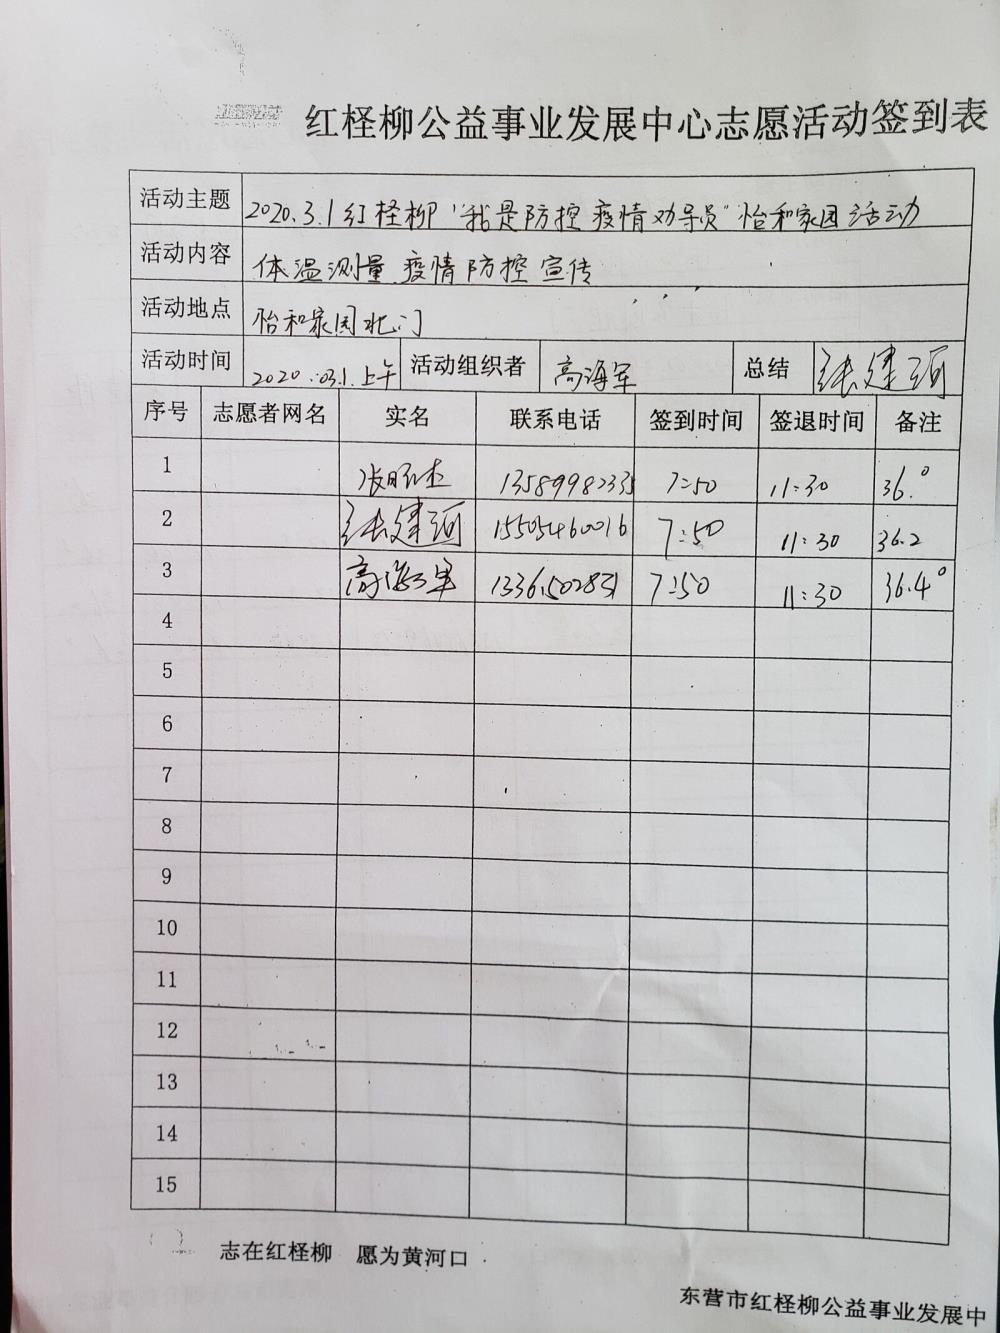 红柽柳公益事业发展中心志愿活动签到表
活动主题 2020.3.1红柽柳"我是防控疫情劝导员"怡和家园活动
活动内容 体温测量.疫情防控宣传
活动地点 怡和家园北门
活动时间 2020.03.1.上午 活动组织者 高海军 总结 张建河
序号 志愿者网名 实名 联系电话 签到时间 签退时间 备注
1 7:50 11:30 36.°
2 张建河 15505460016 7:50 11:30 36.2
3 高海军 7:50 11:30 36.4°
4
5
6
7
8
9
10
11
12
13
14
15
志在红柽柳 愿为黄河口
东营市红柽柳公益事业发展中